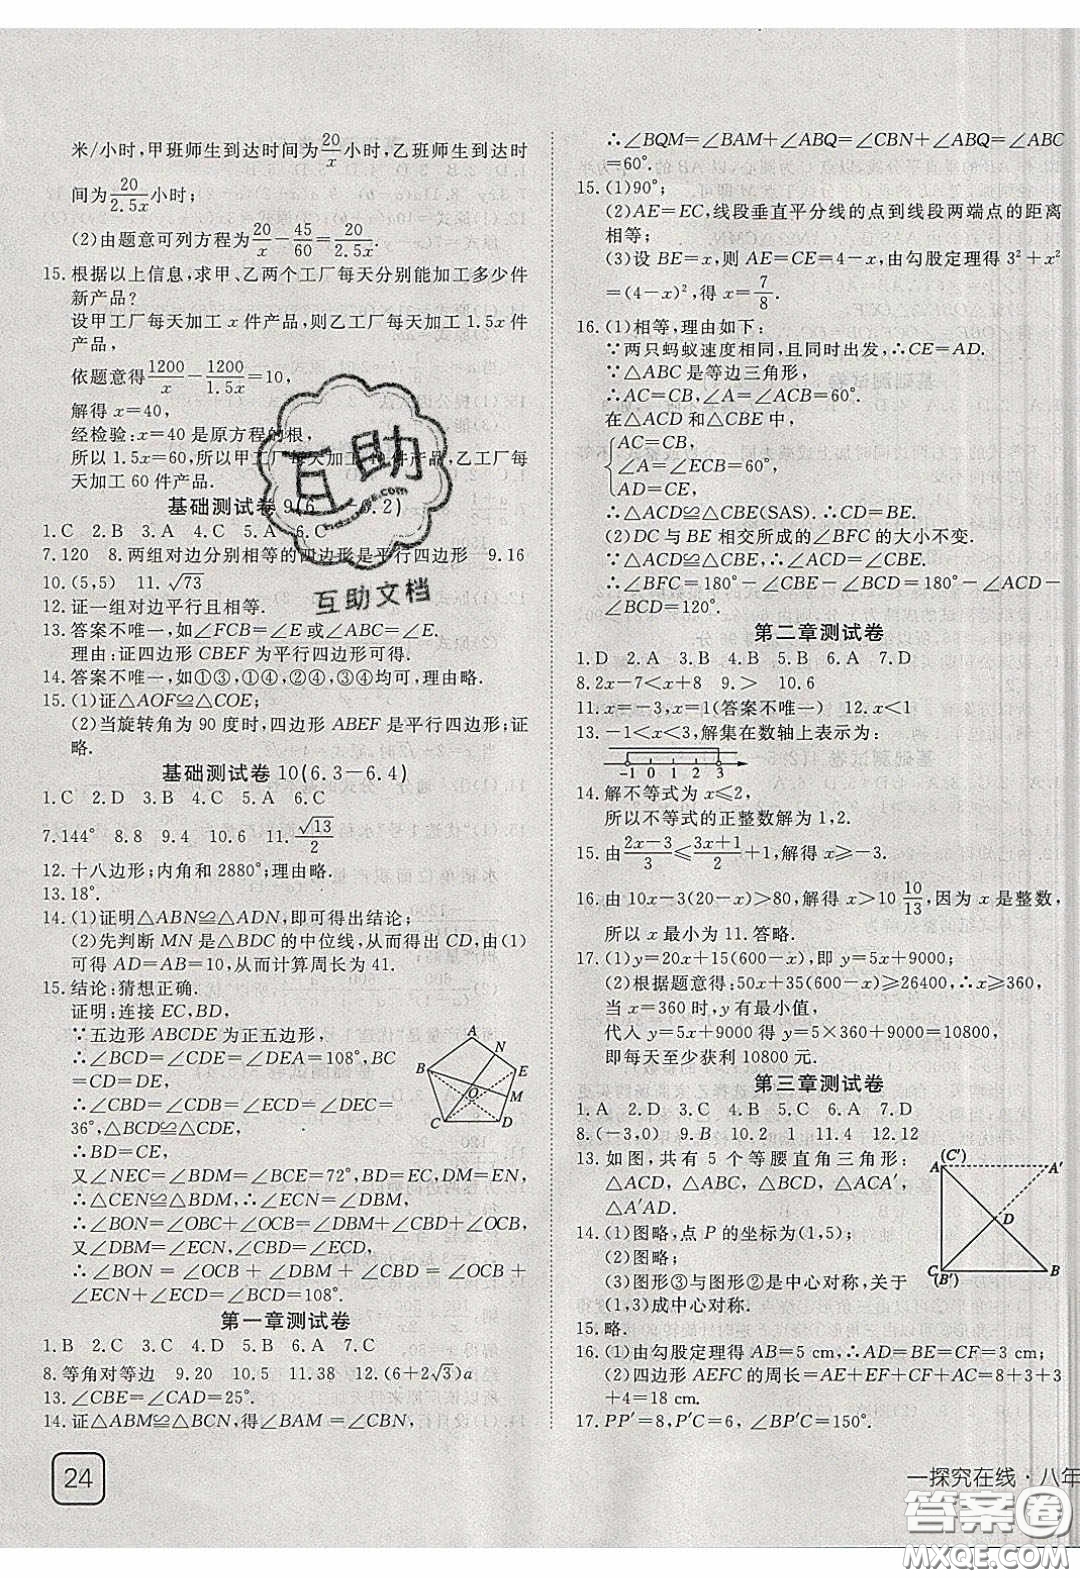 米/小时,甲班师生到达时间为20/x小时,乙班师生到达时
间为20/2.5x小时;
(2)由题意可列方程为20/x-45/60=20/2.5x.
15.根据以上信息,求甲、乙两个工厂每天分别能加工多少件
新产品?
设甲工厂每天加工x件产品,则乙工厂每天加工1.5x件
产品,
依题意得1200/x-1200/1.5x=10,
解得x=40,
经检验:x=40是原方程的根,
所以1.5x=60,所以甲工厂每天加工40件产品,乙工厂每
天加工60件产品.
基础测试卷9(6.1-6.2)
1.C 2.B 3.A 4.C 5.A 6.C
7.120 8.两组对边分别相等的四边形是平行四边形 9.16
10.(5,5) 11.√73
12.证一组对边平行且相等.
13.答案不唯一,如∠FCB=∠E或∠ABC=∠E.
理由:证四边形CBEF为平行四边形可得.
14.答案不唯一,如①③,①④,②④,③④均可,理由略.
15.(1)证△AOF≌△COE;
(2)当旋转角为90度时,四边形ABEF是平行四边形;证
略.
基础测试卷10(6.3-6.4)
1.C 2.D 3.B 4.C 5.A 6.C
7.144° 8.8 9.4 10.6 11.√13/2
12.十八边形;内角和2880°;理由略.
13.18°.
14.(1)证明△ABN≌△ADN,即可得出结论;
(2)先判断MN是△BDC的中位线,从而得出CD,由(1)
可得AD=AB=10,从而计算周长为41.
15.结论:猜想正确.
证明:连接EC,BD,
∵五边形ABCDE为正五边形,
∴∠BCD=∠CDE=∠DEA=108°,BC
=CD=DE,
∴∠CBD=∠CDB=∠ECD=∠DEC=
36°,△CBD≌△DEC,
∴BD=CE,
又∠NEC=∠BDM=∠BCE=72°,BC=ED,DM=EN,
∴△CEN≌△BDM,∴∠ECN=∠DBM,
∴∠BON=∠OBC+∠OCB=∠DBM+∠CBD+∠OCB,
又∠DBM=∠ECN,∠CBD=∠ECD,
∴∠BON=∠OCB+∠DBM+∠CBD=∠OCB+
∠ECN+∠ECD=∠BCD=108°.
A
N
B
E
O
M
C
D
第一章测试卷
1.B 2.C 3.D 4.A 5.A 6.B 7.C
8.等角对等边 9.20 10.5 11.38 12.(6+2√3)a
13.∠CBE=∠CAD=25°.
14.证△ABM≌△BCN,得∠BAM=∠CBN,
24
∴∠BQM=∠BAM+∠ABQ=∠CBN+∠ABQ=∠ABC
=60°.
15.(1)90°;
(2)AE=EC,线段垂直平分线的点到线段两端点的距离
相等;
(3)设BE=x,则AE=CE=4-x,由勾股定理得3²+x²
=(4-x)²,得x=7/8.
16.(1)相等,理由如下:
∵两只蚂蚁速度相同,且同时出发,∴CE=AD.
∵△ABC是等边三角形,
∴AC=CB,∠A=∠ACB=60°,
在△ACD和△CBE中,
AC=CB,
∠A=∠ECB=60°,
AD=CE,
∴△ACD≌△CBE(SAS).∴CD=BE.
(2)DC与BE相交所成的∠BFC的大小不变.
∵△ACD≌△CBE,∴∠ACD=∠CBE.
∴∠BFC=180°-∠CBE-∠BCD=180°-∠ACD-
∠BCD=120°.
第二章测试卷
1.D 2.A 3.B 4.B 5.B 6.A 7.D
8.2x-7<x+8 9.> 10.6
11.x=-3,x=1(答案不唯一) 12.x<1
13.-1<x<3,解集在数轴上表示为:
-1 0 1 2 3
14.解不等式为x≤2,
所以不等式的正整数解为1,2.
15.由2x-3/3≤3x+1/2+1,解得x≥-3.
16.由10x-3(20-x)>80,解得x>10 10/13,因为x是整数,
所以x最小为11.答略.
17.(1)y=20x+15(600-x),即y=5x+9000;
(2)根据题意得:50x+35(600-x)≥26400,∴x≥360,
当x=360时,y有最小值,
代入y=5x+9000得y=5×360+9000=10800,
即每天至少获利10800元.
第三章测试卷
1.A 2.D 3.C 4.B 5.C 6.A 7.D
8.(-3,0) 9.B 10.2 1 11.4 12.12
13.如图,共有5个等腰直角三角形:
△ACD,△ABC,△BCD,△ACA′,
△A′AD.
(C′)
A
A′
D
C
(B′)
B
14.(1)图略,点P的坐标为(1,5);
(2)图略;
(3)图形③与图形②是中心对称,关于
(1,3)成中心对称.
15.略.
16.(1)由勾股定理得AB=5 cm,∴AC=AB=5 cm;
(2)四边形AEFC的周长=AE+EF+CF+AC=8+3+3
+4=18 cm.
17.PP′=8,P′C=6,∠BP′C=150°.
一探究在线·八年
互助
互助文档
答案圈
MXQE.COM